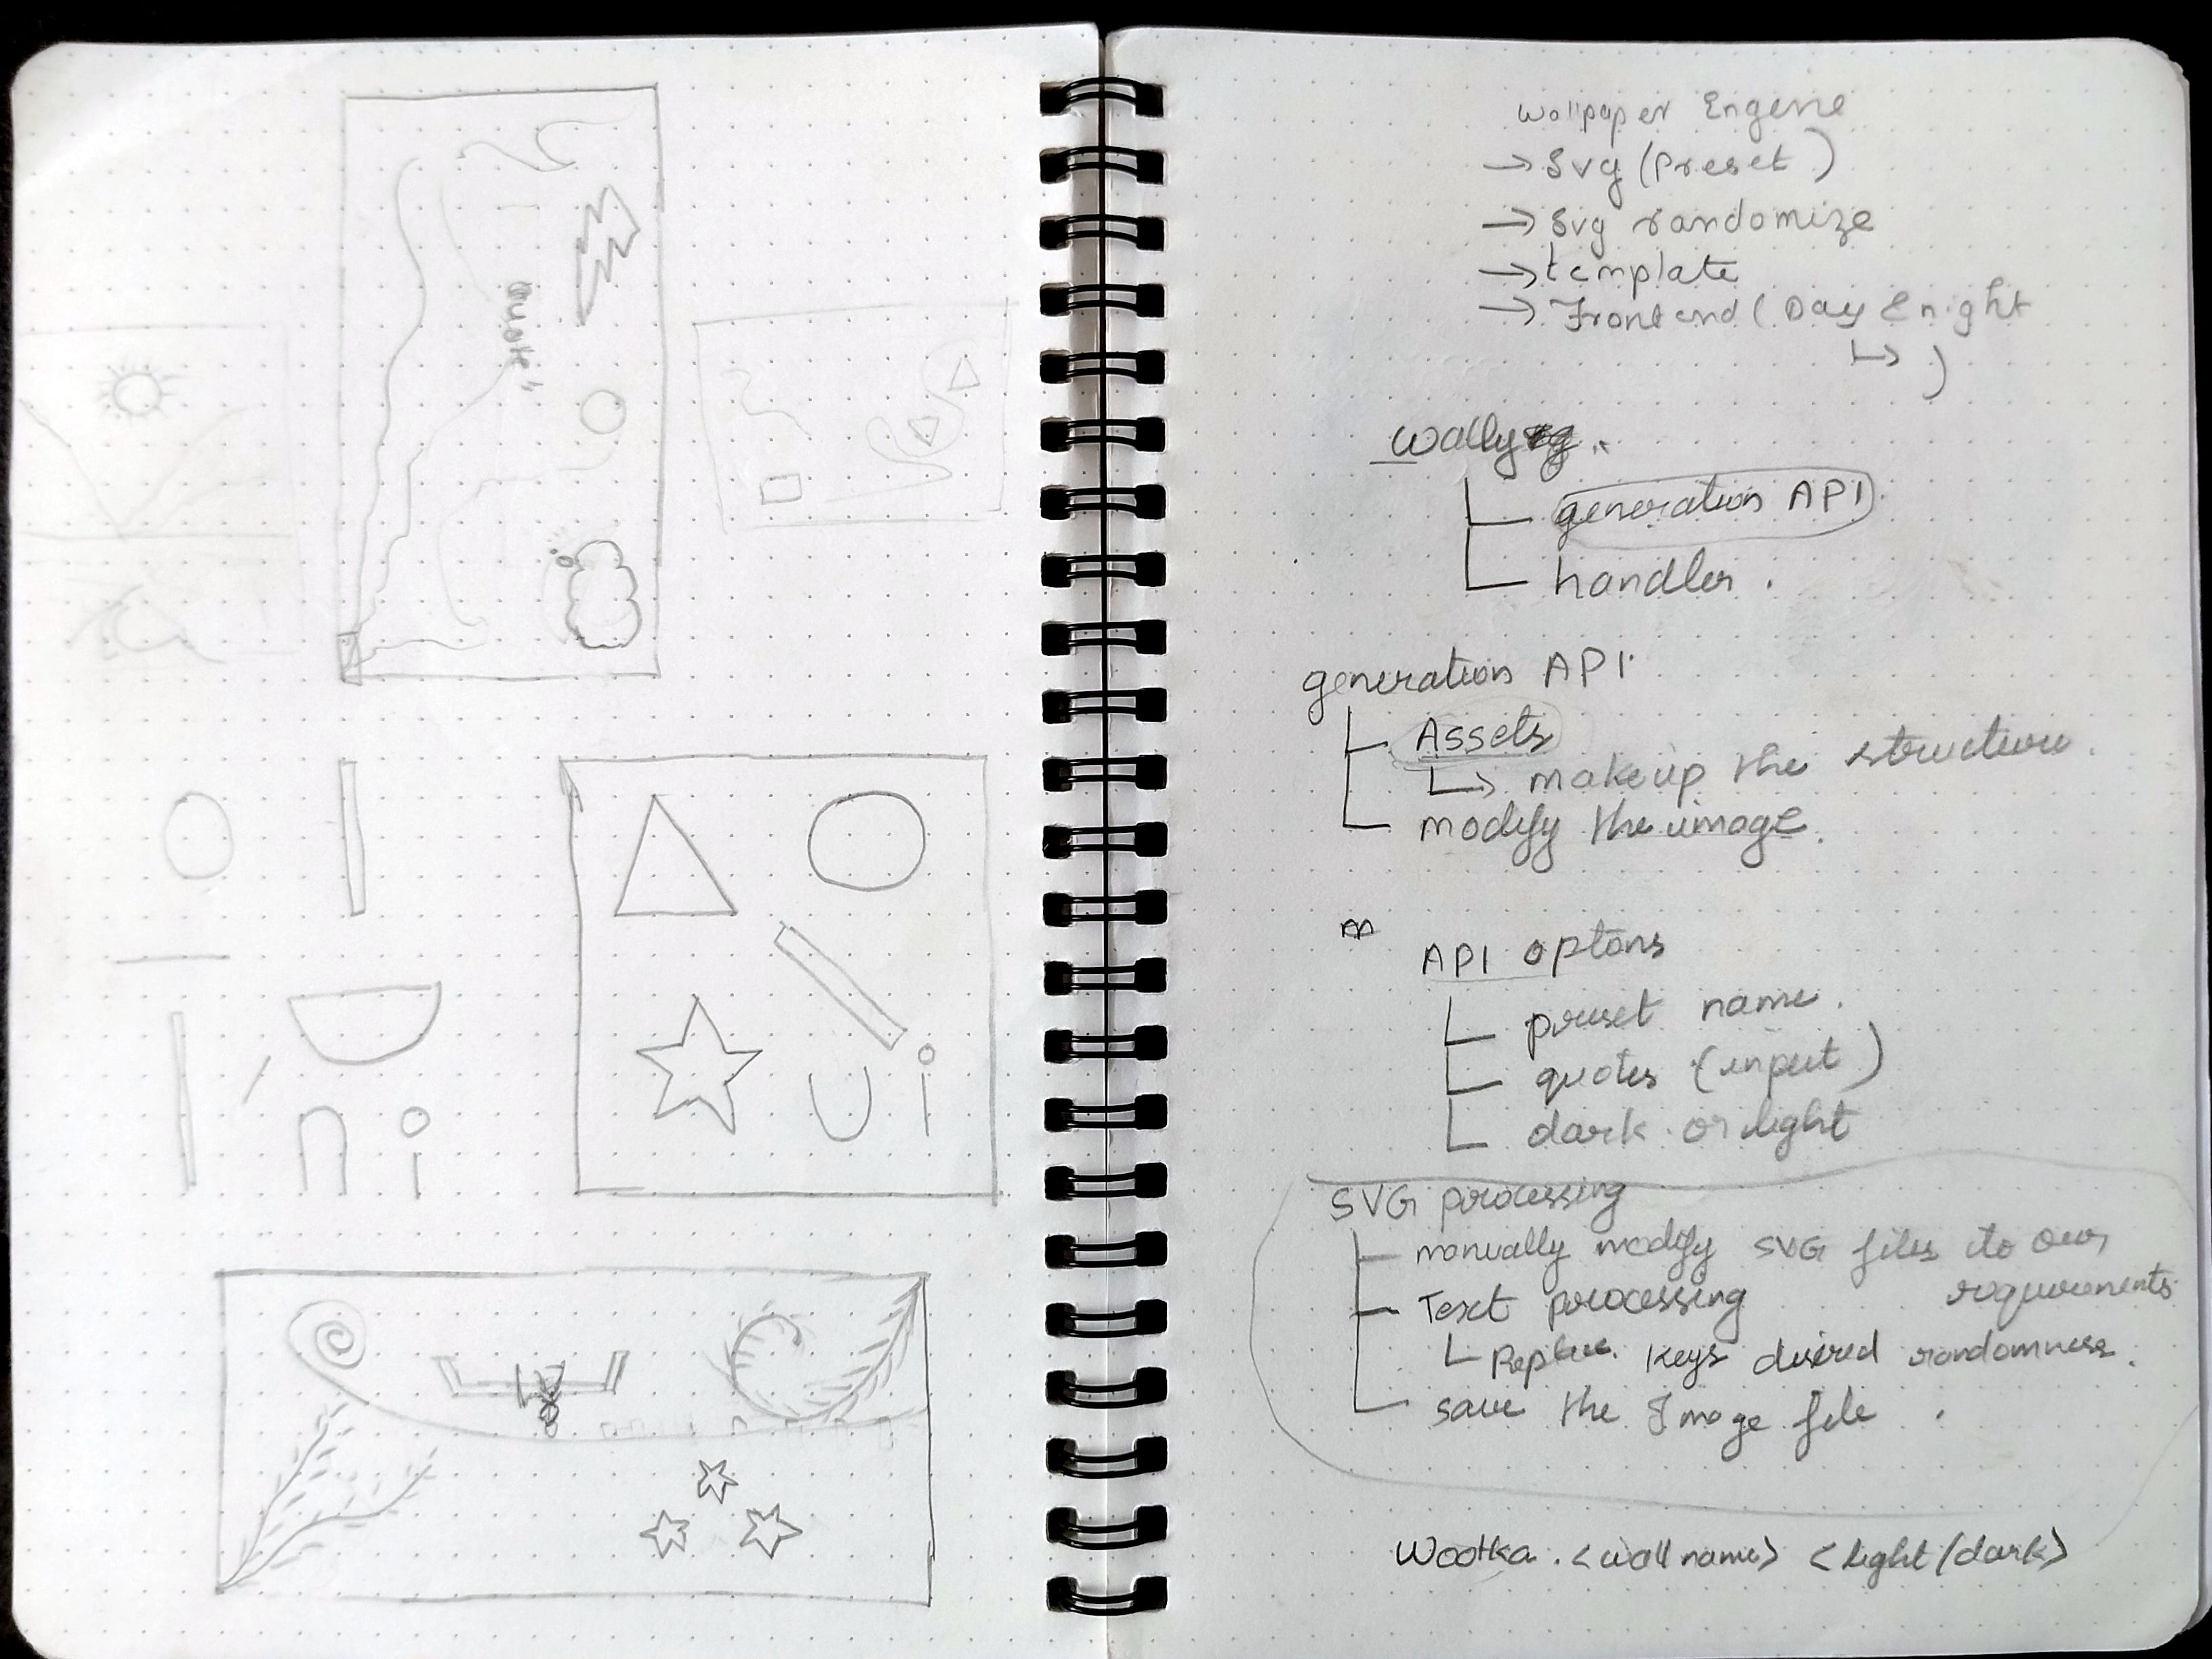 Quote"
wallpaper Engene
→ Svg (Preset)
→ Svg randomize
→ template
→ Frontend (Day & night
↳ )
generation API.
handler.
generation API.
Assets
↳ makeup the structure.
modify the image.
m
API optons
preset name.
quotes (input)
dark or light
SVG processing
manually modify SVG files to our
requirements
Text processing
Replace keys desired randomness.
save the Image file.
<wall name> <light/dark>